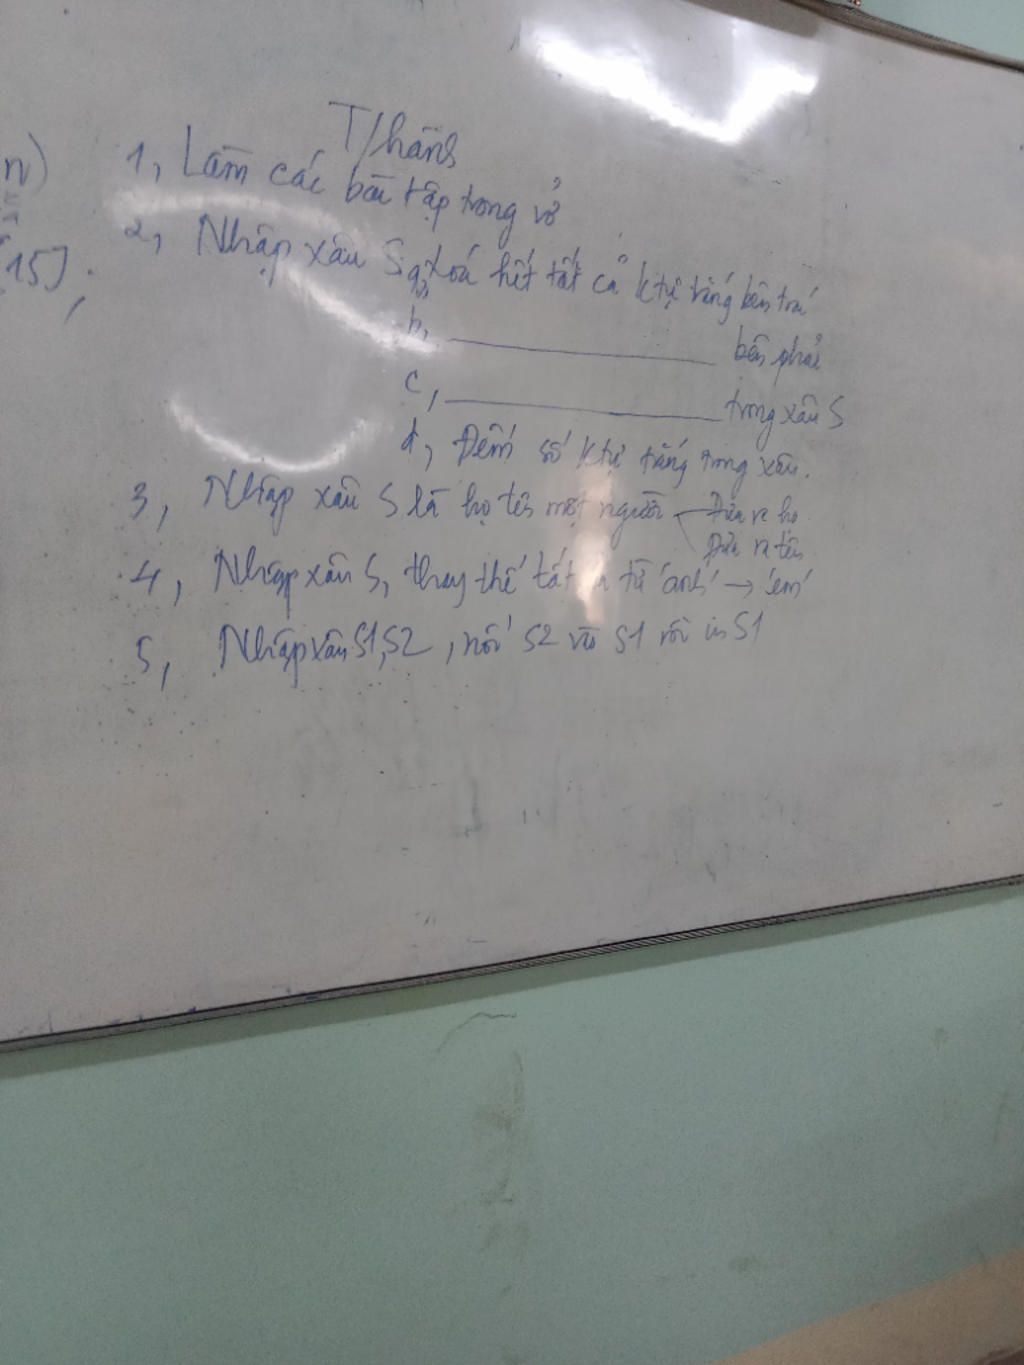 T/hành
n)
15];
1, Làm các bài tập trong vở
2, Nhập xâu S a, Xoá hết tất cả ktự trắng bên trái
b, bên phải
c, trong xâu S
d, Đếm số ktự trắng trong xâu.
3, Nhập xâu S là họ tên một người Đưa ra họ
Đưa ra tên
4, Nhập xâu S, thay thế tất từ 'anh' → 'em'
5, Nhập xâu S1, S2, nối S2 vào S1 rồi in S1